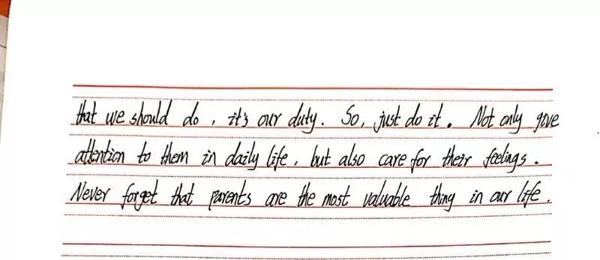 that we should do, it's our duty. So, just do it. Not only give
attention to them in daily life, but also care for their feelings.
Never forget that parents are the most valuable thing in our life.